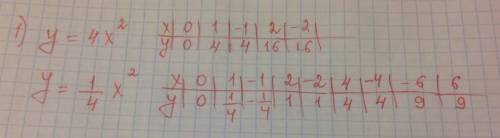 1) y = 4x² x | 0 | 1 | -1 | 2 | -2
y | 0 | 4 | 4 | 16 | 16
y = 1/4 x² x | 0 | 1 | -1 | 2 | -2 | 4 | -4 | -6 | 6
y | 0 | 1/4 | -1/4 | 1 | 1 | 4 | 4 | 9 | 9